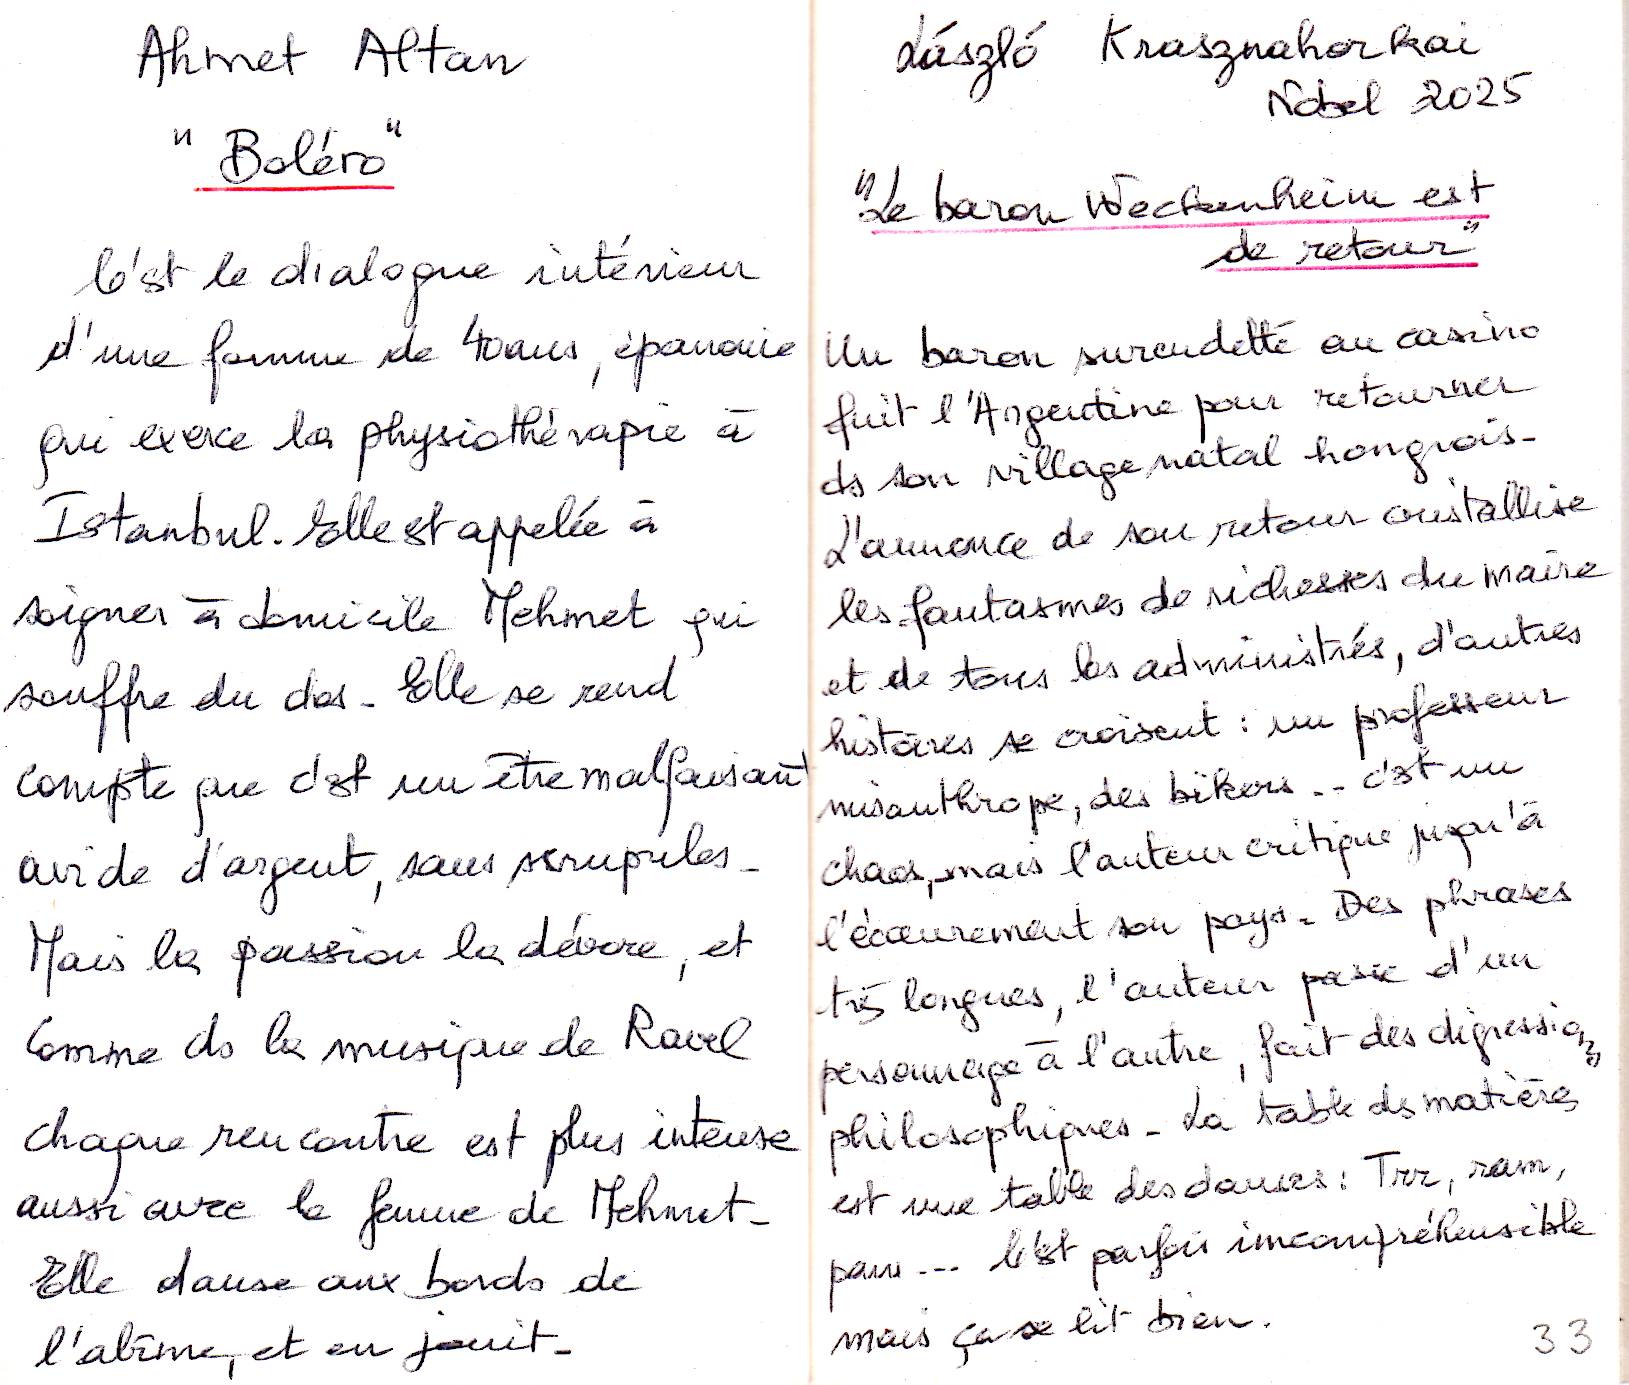 Ahmet Altan
"Boléro"
C'est le dialogue intérieur
d'une femme de 40 ans, épanouie
qui exerce la physiothérapie à
Istanbul. Elle est appelée à
soigner à domicile Mehmet qui
souffre du dos - Elle se rend
compte que c'est un être malfaisant
avide d'argent, sans scrupules -
Mais la passion la dévore, et
comme ds la musique de Ravel
chaque rencontre est plus intense
aussi avec la femme de Mehmet -
Elle danse aux bords de
l'abîme, et en jouit -
László Krasznahorkai
Nobel 2025
"Le baron Wenckheim est
de retour"
Un baron surendetté au casino
fuit l'Argentine pour retourner
ds son village natal hongrois -
L'annonce de son retour cristallise
les fantasmes de richesses du maire
et de tous les administrés, d'autres
histoires se croisent : un professeur
misanthrope, des bikers -- c'est un
chaos, mais l'auteur critique jusqu'à
l'écœurement son pays - Des phrases
très longues, l'auteur passe d'un
personnage à l'autre, fait des digressions
philosophiques - La table des matières
est une table des danses : Trr, ram,
pam --- C'est parfois incompréhensible
mais ça se lit bien.
33